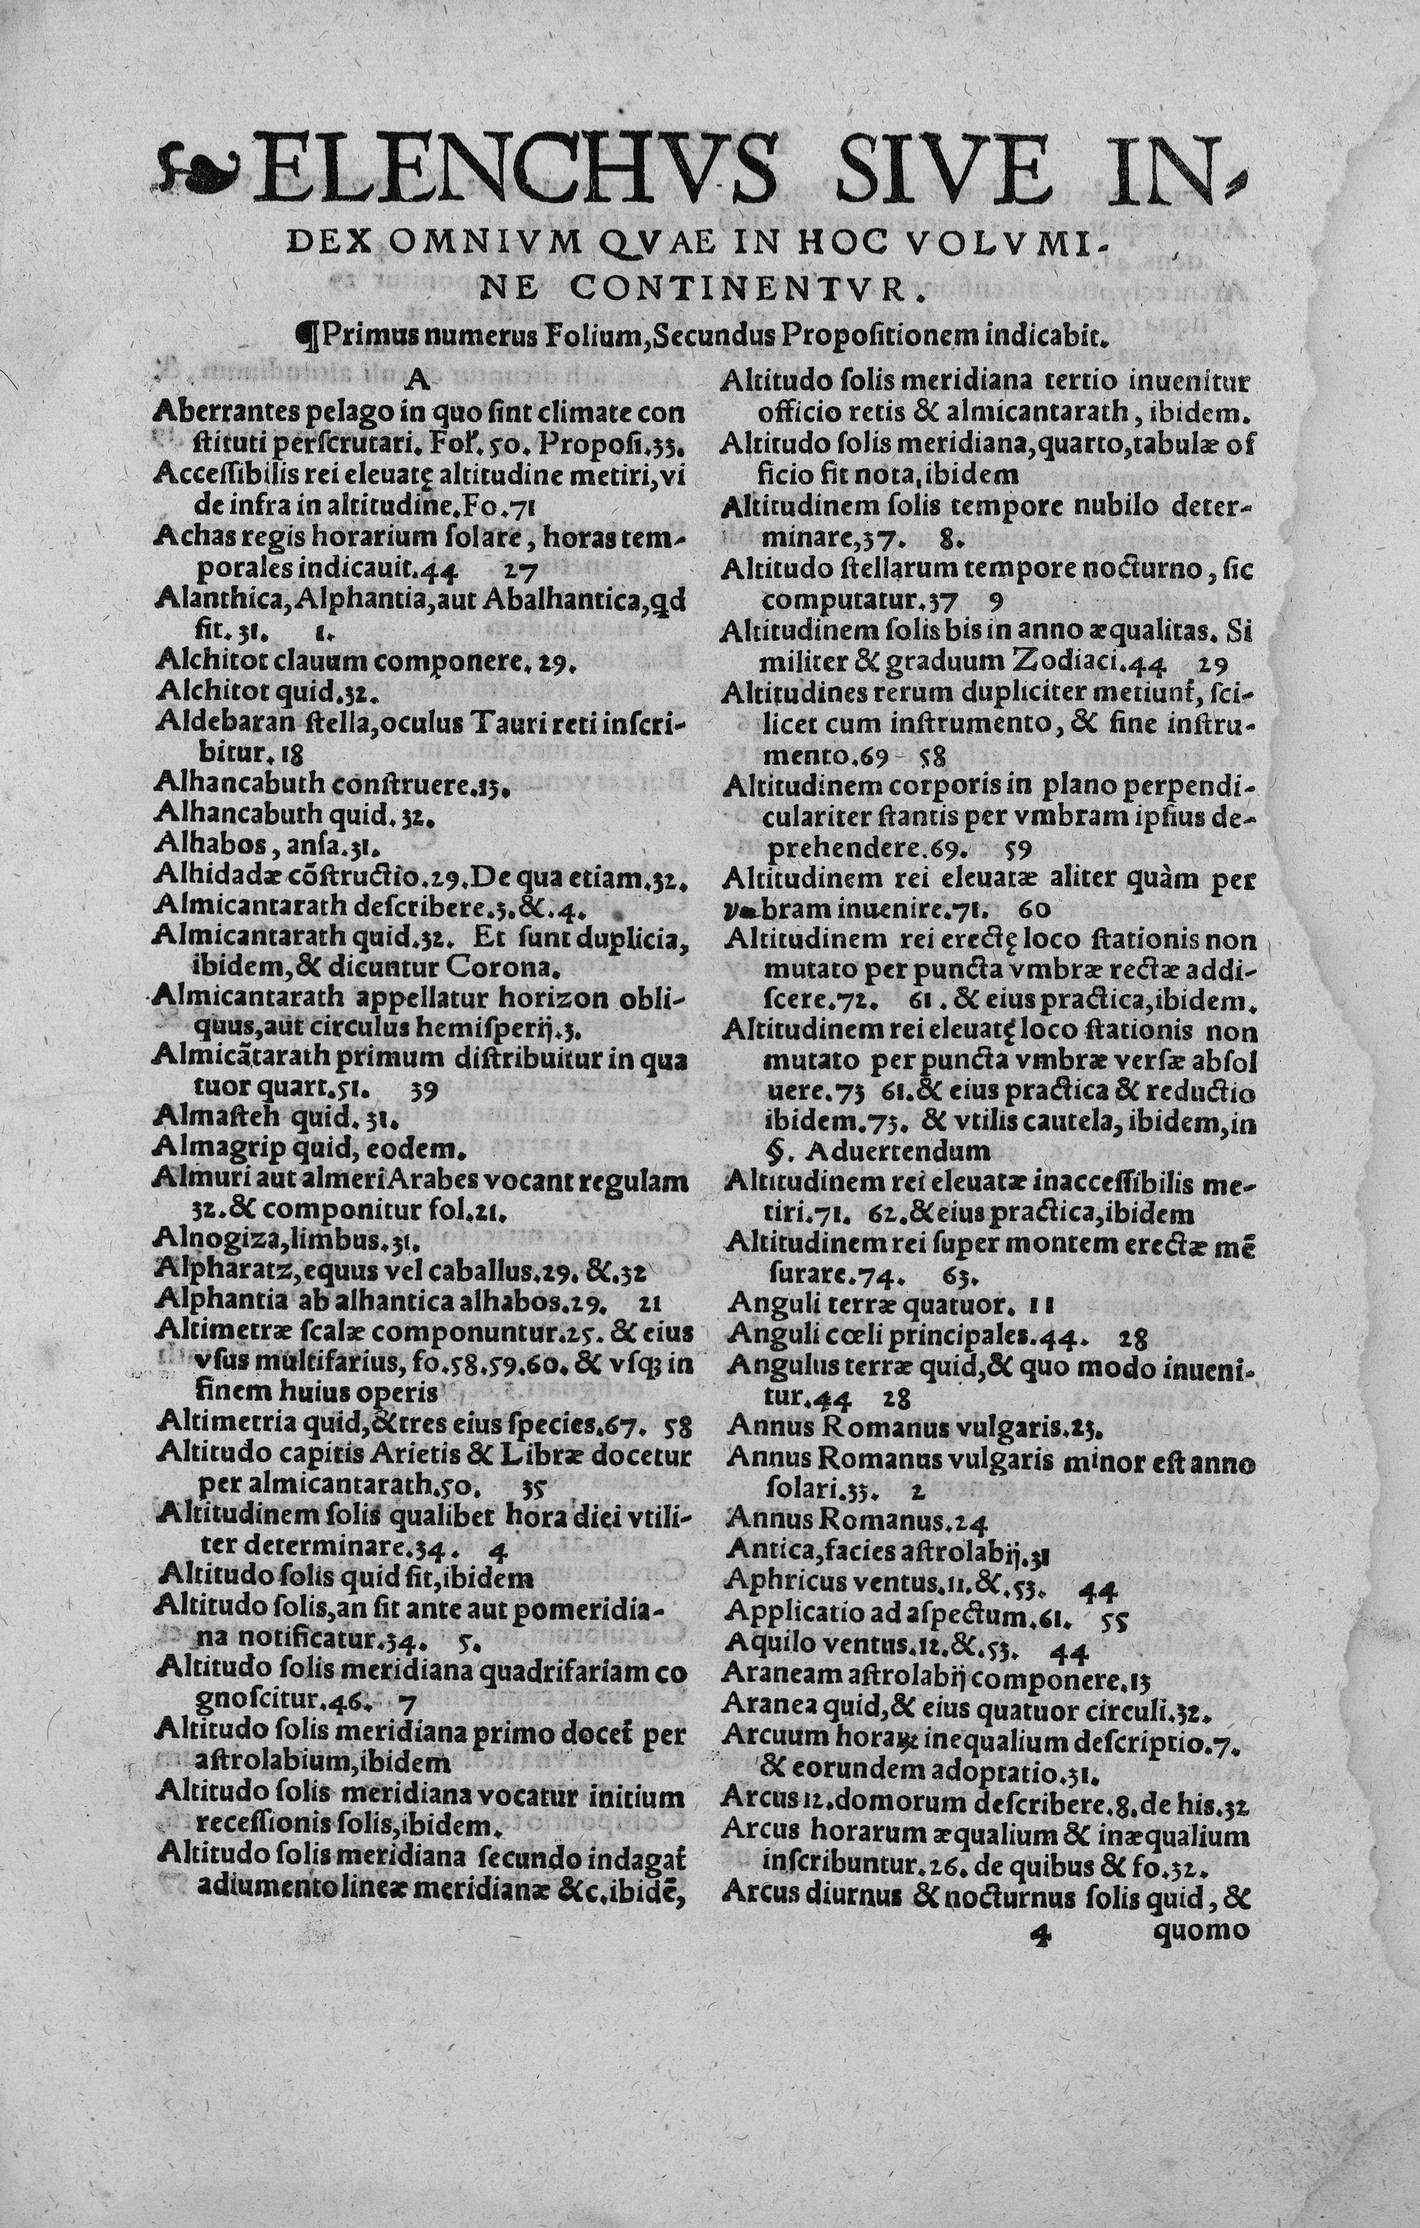 ELENCHVS SIVE IN-
DEX OMNIVM QVAE IN HOC VOLVMI-
NE CONTINENTVR.
¶Primus numerus Folium, Secundus Propositionem indicabit.
A
Aberrantes pelago in quo sint climate con
stituti perscrutari. Fol. 50. Proposi.33.
Accessibilis rei eleuatę altitudine metiri, vi
de infra in altitudine.Fo.71
Achas regis horarium solare, horas tem-
porales indicauit.44 27
Alanthica, Alphantia, aut Abalhantica, qd
sit. 31. 1.
Alchitot clauum componere. 29.
Alchitot quid.32.
Aldebaran stella, oculus Tauri reti inscri-
bitur. 18
Alhancabuth construere.13.
Alhancabuth quid. 32.
Alhabos, ansa.31.
Alhidadæ cõstructio.29.De qua etiam.32.
Almicantarath describere.3.&.4.
Almicantarath quid.32. Et sunt duplicia,
ibidem, & dicuntur Corona.
Almicantarath appellatur horizon obli-
quus, aut circulus hemisperij.3.
Almicãtarath primum distribuitur in qua
tuor quart.51. 39
Almasteh quid. 31.
Almagrip quid, eodem.
Almuri aut almeri Arabes vocant regulam
32.& componitur fol.21.
Alnogiza, limbus.31.
Alpharatz, equus vel caballus.29. &.32
Alphantia ab alhantica alhabos.29. 21
Altimetræ scalæ componuntur.25. & eius
vsus multifarius, fo.58.59.60. & vsq; in
finem huius operis
Altimetria quid, & tres eius species.67. 58
Altitudo capitis Arietis & Libræ docetur
per almicantarath.50. 35
Altitudinem solis qualibet hora diei vtili-
ter determinare.34. 4
Altitudo solis quid sit, ibidem
Altitudo solis, an sit ante aut pomeridia-
na notificatur.34. 5.
Altitudo solis meridiana quadrifariam co
gnoscitur.46. 7
Altitudo solis meridiana primo docet̃ per
astrolabium, ibidem
Altitudo solis meridiana vocatur initium
recessionis solis, ibidem.
Altitudo solis meridiana secundo indagat̃
adiumento lineæ meridianæ &c. ibidẽ,
Altitudo solis meridiana tertio inuenitur
officio retis & almicantarath, ibidem.
Altitudo solis meridiana, quarto, tabulæ of
ficio fit nota, ibidem
Altitudinem solis tempore nubilo deter-
minare, 37. 8.
Altitudo stellarum tempore nocturno, sic
computatur.37 9
Altitudinem solis bis in anno æqualitas. Si
militer & graduum Zodiaci.44 29
Altitudines rerum dupliciter metiunt̃, sci-
licet cum instrumento, & sine instru-
mento.69 58
Altitudinem corporis in plano perpendi-
culariter stantis per vmbram ipsius de-
prehendere.69. 59
Altitudinem rei eleuatæ aliter quàm per
vmbram inuenire.71. 60
Altitudinem rei erectę loco stationis non
mutato per puncta vmbræ rectæ addi-
scere.72. 61. & eius practica, ibidem.
Altitudinem rei eleuatę loco stationis non
mutato per puncta vmbræ versæ absol
uere.73 61.& eius practica & reductio
ibidem.73. & vtilis cautela, ibidem, in
§. Aduertendum
Altitudinem rei eleuatæ inaccessibilis me-
tiri.71. 62.& eius practica, ibidem
Altitudinem rei super montem erectæ mẽ
surare.74. 63.
Anguli terræ quatuor. 11
Anguli cœli principales.44. 28
Angulus terræ quid, & quo modo inueni-
tur.44 28
Annus Romanus vulgaris.23.
Annus Romanus vulgaris minor est anno
solari.33. 2
Annus Romanus.24
Antica, facies astrolabij.31
Aphricus ventus.11.&.53. 44
Applicatio ad aspectum.61. 55
Aquilo ventus.12.&.53. 44
Araneam astrolabij componere.13
Aranea quid, & eius quatuor circuli.32.
Arcuum horaꝝ inequalium descriptio.7.
& eorundem adoptatio.31.
Arcus 12. domorum describere.8. de his.32
Arcus horarum æqualium & inæqualium
inscribuntur.26. de quibus & fo.32.
Arcus diurnus & nocturnus solis quid, &
4 quomo